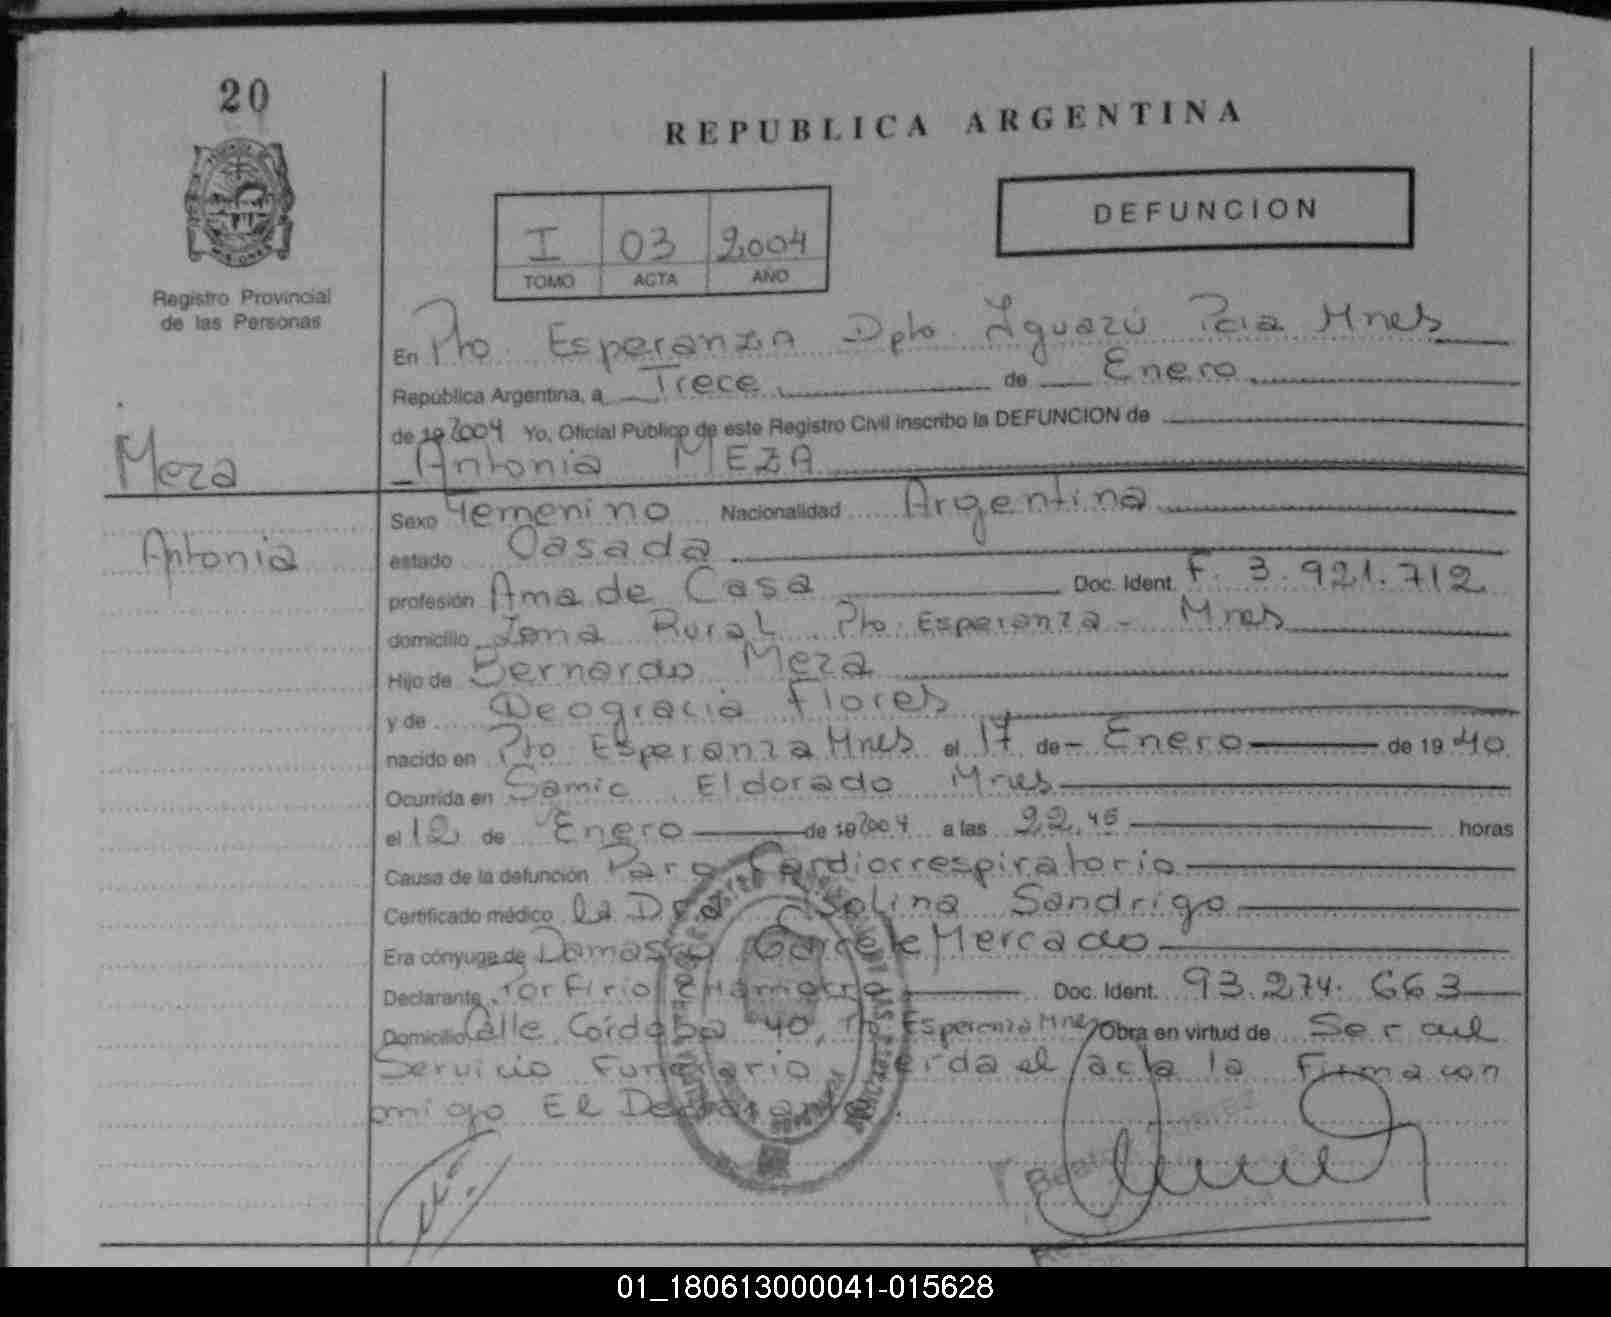 20
REPUBLICA ARGENTINA
DEFUNCION
I 03 2004
TOMO ACTA AÑO
Registro Provincial
de las Personas
En Pto. Esperanza Dpto Iguazú Pcia Mnes
República Argentina, a Trece de Enero
de 19 2004 Yo, Oficial Público de este Registro Civil inscribo la DEFUNCION de
Meza
Antonia MEZA
Sexo Femenino Nacionalidad Argentina
Antonia
estado Casada
profesión Ama de Casa Doc. Ident. F. 3.921.712
domicilio Zona Rural Pto. Esperanza - Mnes
Hijo de Bernardo Meza
y de Deogracia Flores
nacido en Pto Esperanza Mnes el 17 de Enero de 19 40
Ocurrida en Samic Eldorado Mnes
el 12 de Enero de 19 2004 a las 22.45 horas
Causa de la defunción Paro Cardiorrespiratorio
Certificado médico la Dra Sandrigo
Era cónyuge de Mercado
Declarante Porfirio Doc. Ident. 93.274.663
Domicilio Calle Córdoba 40, Pto Esperanza Mnes Obra en virtud de Ser del
Servicio Funerario el acta la Firma con
migo El Declarante
01_180613000041-015628